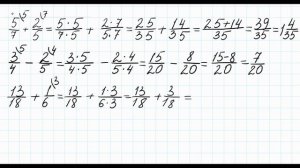 5/7^\5 + 2/5^\7 = 5·5/7·5 + 2·7/5·7 = 25/35 + 14/35 = 25+14/35 = 39/35 = 1 4/35
3/4^\5 - 2/5^\4 = 3·5/4·5 - 2·4/5·4 = 15/20 - 8/20 = 15-8/20 = 7/20
13/18 + 1/6^\3 = 13/18 + 1·3/6·3 = 13/18 + 3/18 =